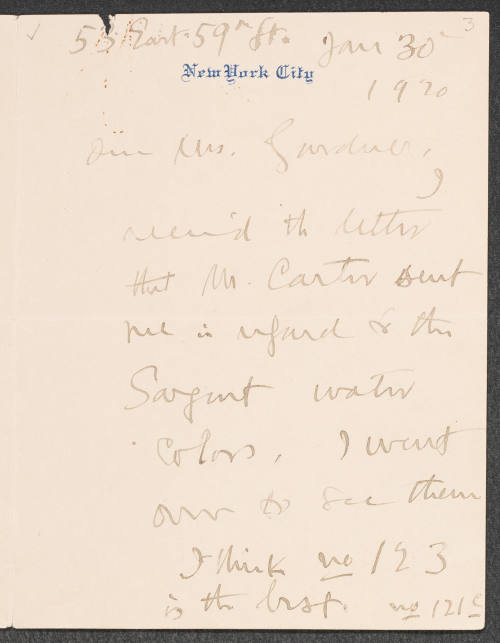 53 East 59th St. Jan 30
New York City
1920
3
Dear Mrs. Gardner,
I
receiv'd the letter
that Mr. Carter sent
me in regard to the
Sargent water
colors, I went
over to see them
I think no 123
is the best. no 121